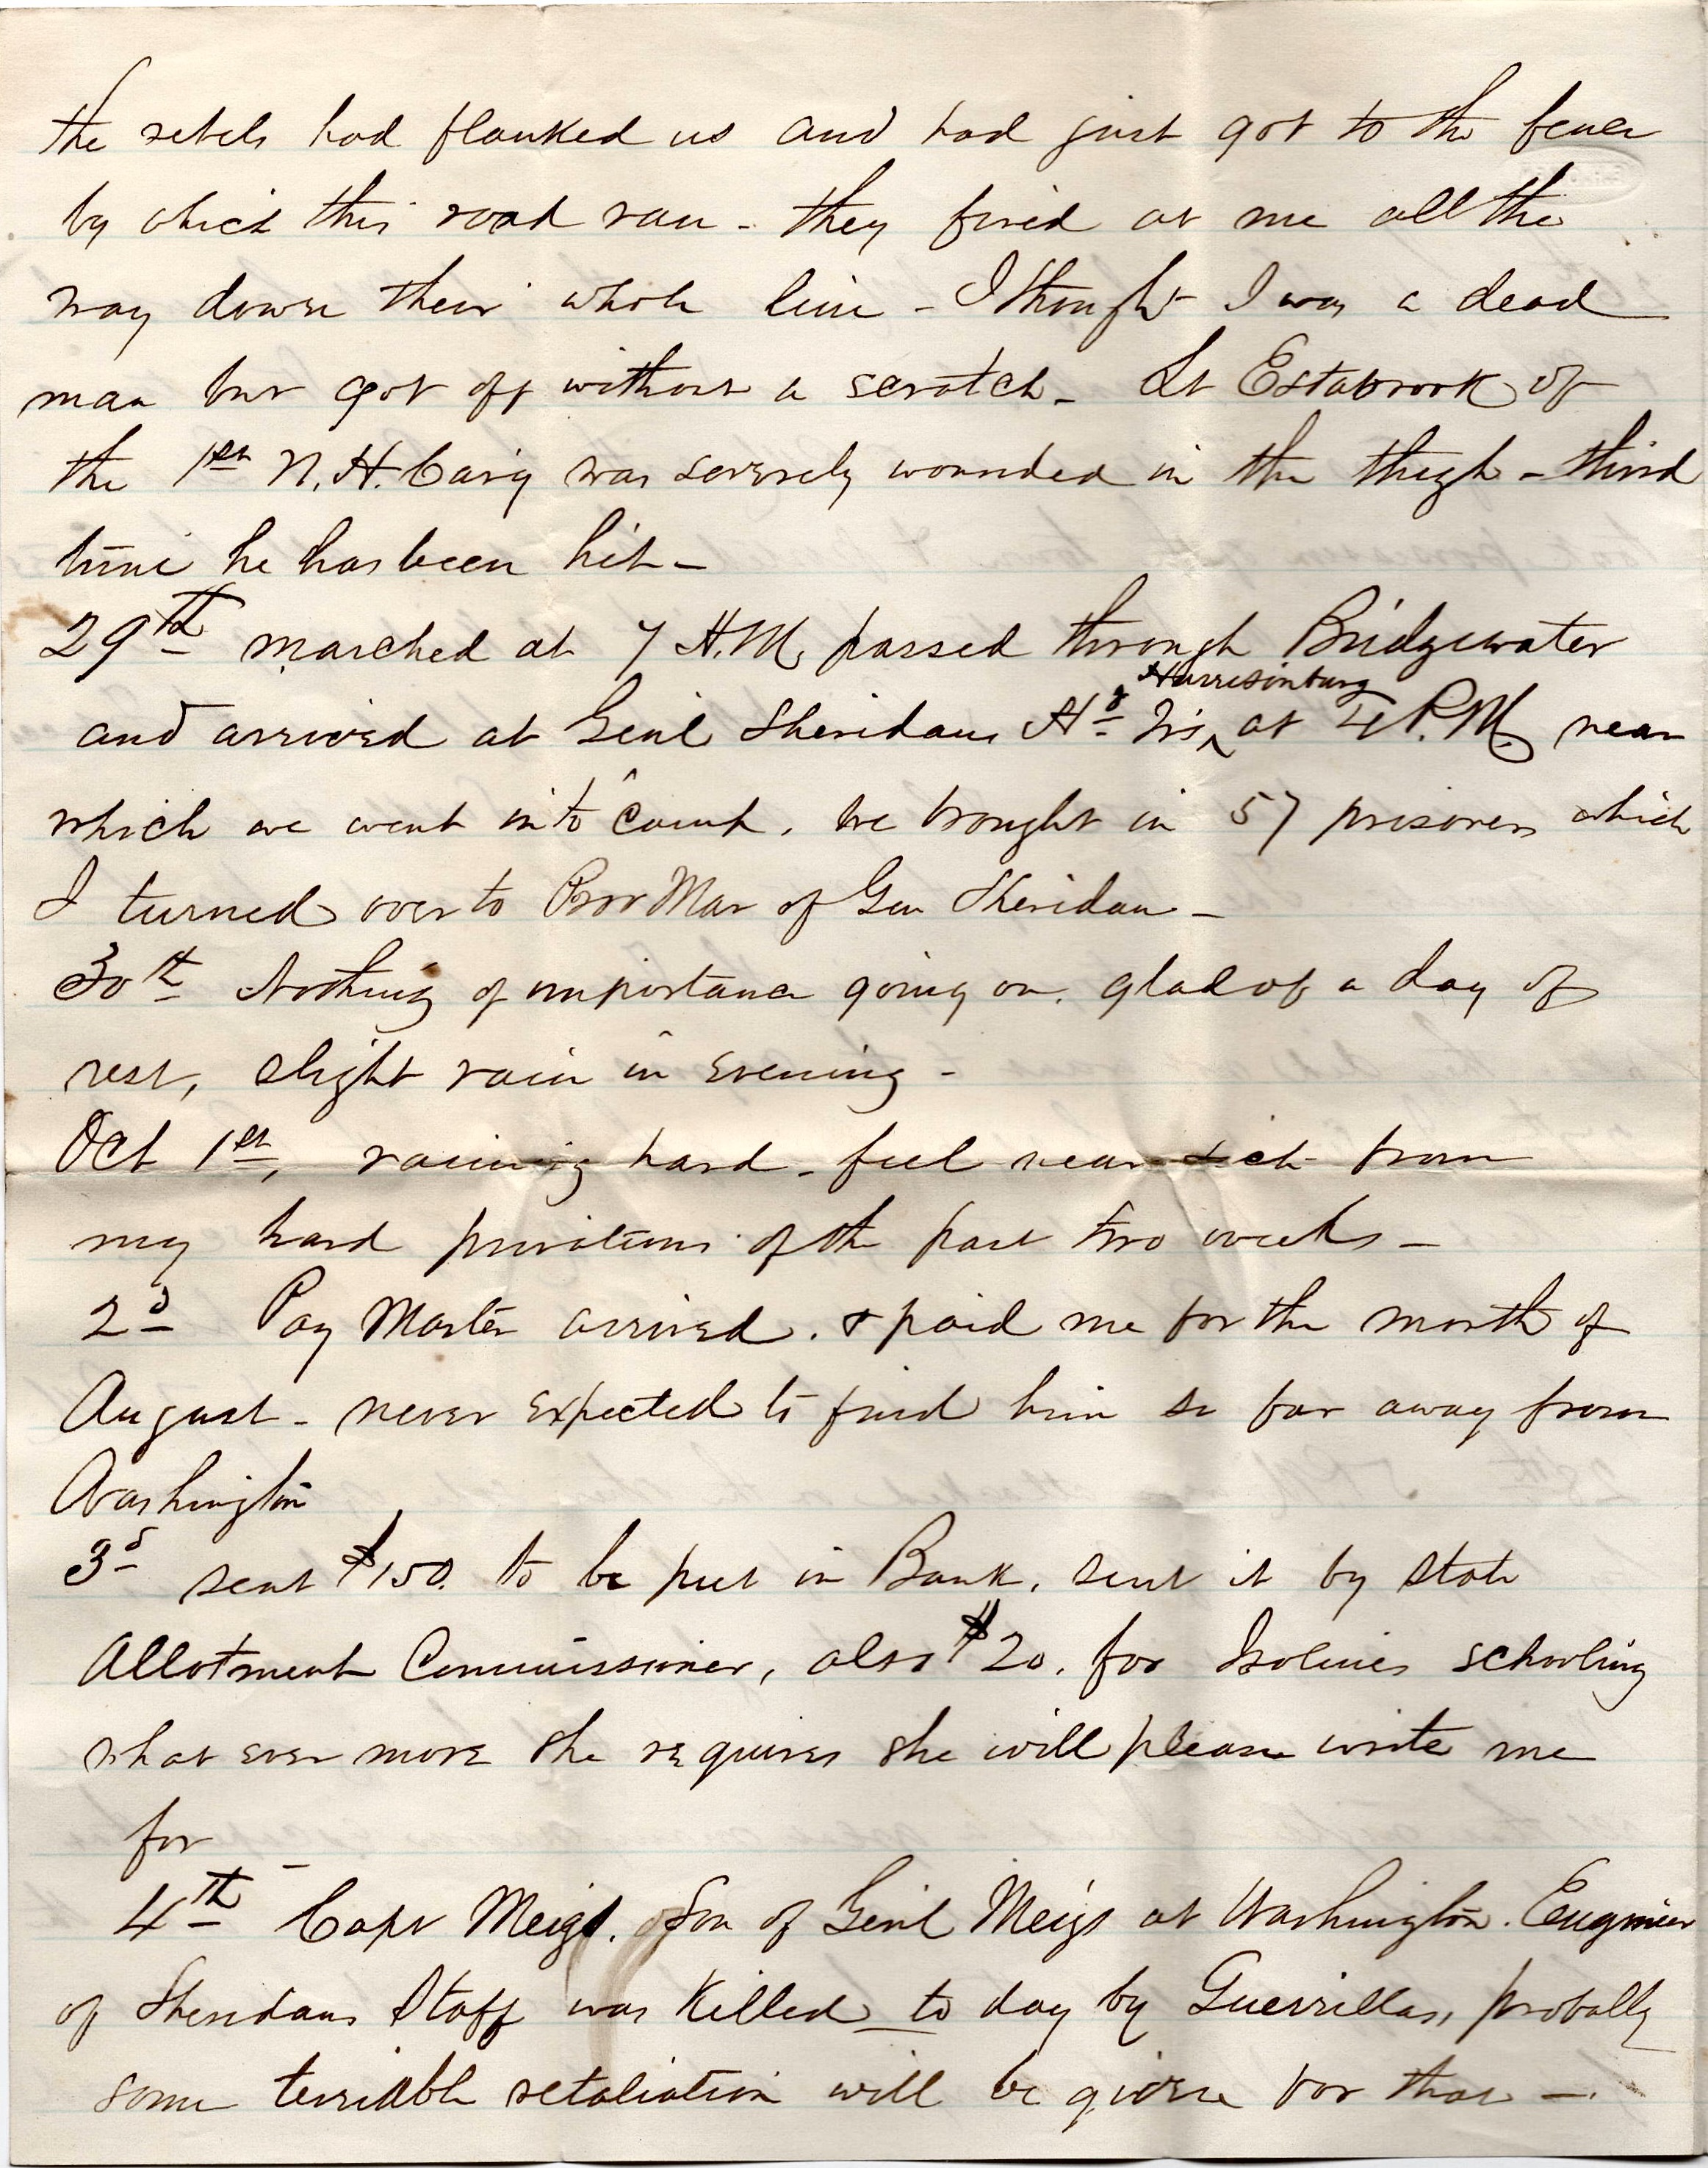 the rebels had flanked us and had just got to the fence
by which this road ran - they fired at me all the
way down their whole line - I thought I was a dead
man but got off without a scratch - Lt Estabrook of
the 1st N.H. Cavy was severely wounded in the thigh - third
time he has been hit -
29th marched at 7 A.M. passed through Bridgewater
Harrisonburg
and arrived at Genl Sheridans Hd Qrs ^ at 4 P.M. near
which we went into camp. We brought in 57 prisoners which
I turned over to Prov Mar of Gen Sheridan -
30th Nothing of importance going on. glad of a day of
rest, slight rain in evening -
Oct 1st, raining hard - feel near sick from
my hard privations of the past two weeks -
2d Pay Master arrived. & paid me for the month of
August - never expected to find him so far away from
Washington
3d sent $150. to be put in Bank, sent it by State
Allotment Commissioner, also $20. for Isolines schooling
what ever more she requires she will please write me
for
4th Capt Meigs. Son of Genl Meigs at Washington. Engineer
of Sheridans Staff was killed to day by Guerrillas, probally
some terrible retaliation will be given for that -.